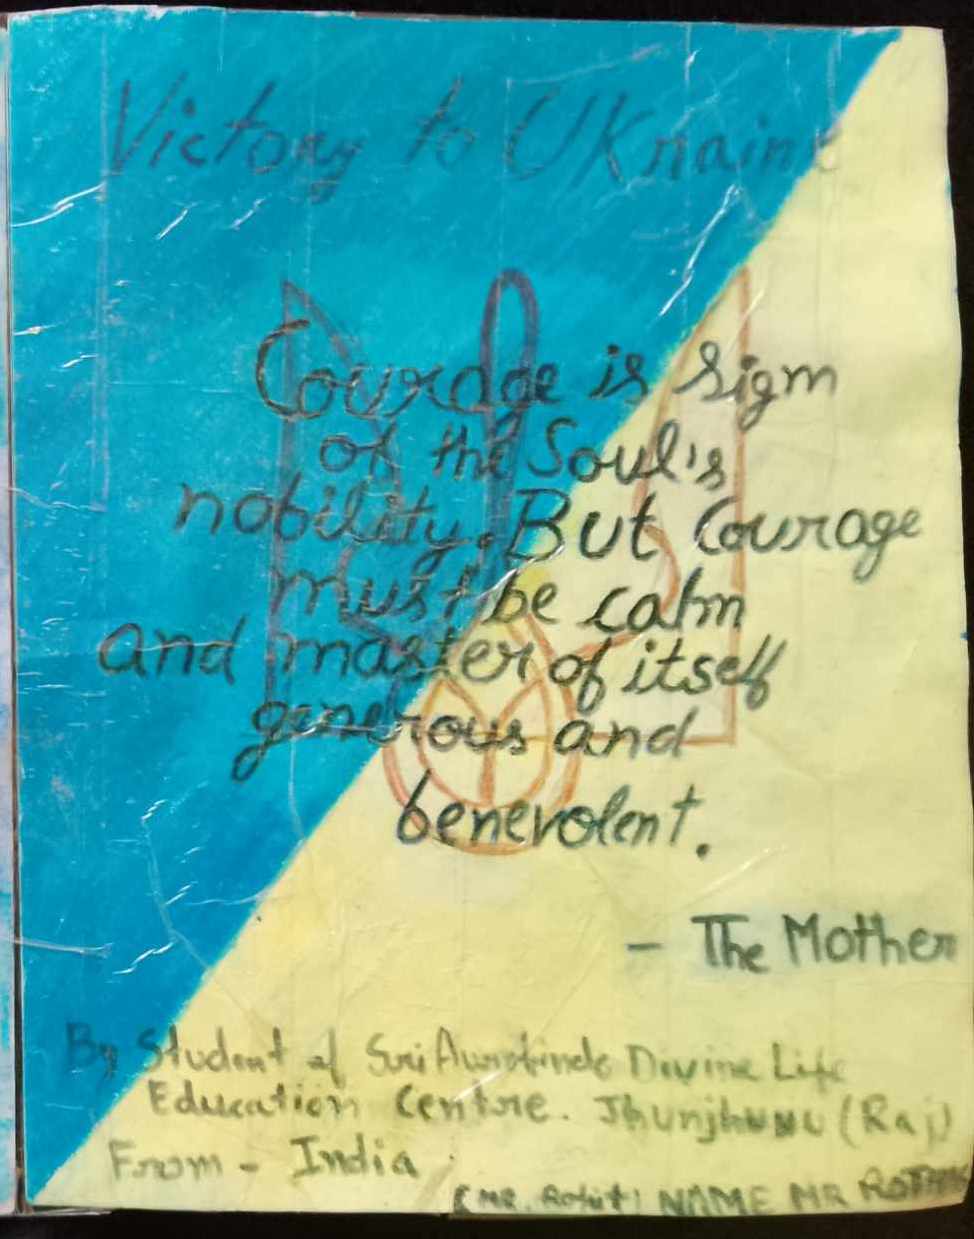 Victory to Ukraine
Courage is sign
of the Soul's
nobility. But Courage
must be calm
and master of itself
generous and
benevolent.
- The Mother
By Student of Sri Aurobindo Divine Life
Education Centre. Jhunjhunu (Raj)
From - India
(MR. Rohit) NAME MR